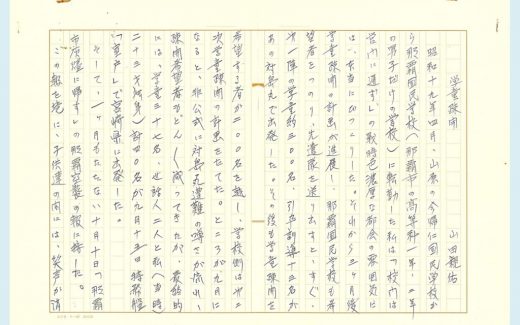 学童疎開
山田親信
昭和十九年四月、山原の今帰仁国民学校か
ら那覇国民学校(那覇市の高等科一年、二年
の男子だけの学校)に転勤した私は「校門は
営門に通ず」の戦時色濃厚な都会の雰囲気に
は、本当にびっくりした。それから三ヶ月後
学童疎開の計画が進展し、那覇国民学校も希
望者をつのり、先遣隊を送り出すと、すぐ、
第一陣の学童約三〇〇名、引率訓導十三名が
あの対馬丸で出発した。その後も学童疎開を
希望する者が二〇〇名を越し、学校側は第二
次学童疎開の計画をたてた。ところが九月に
なると、非公式に対馬丸遭難の噂さが流れ、
疎開希望者もどんどん減ってきたが、最終的
には、学童三十七名、世話人二人と私(当時
二十三才独身)計四〇名が九月十五日特務艦
「室戸」で宮崎県に出発した。
そして、一ヶ月もたたない十月十日の「那覇
市灰燼に帰す」の那覇空襲の報に接した。
この報を境に、子供達の間には、笑声が消